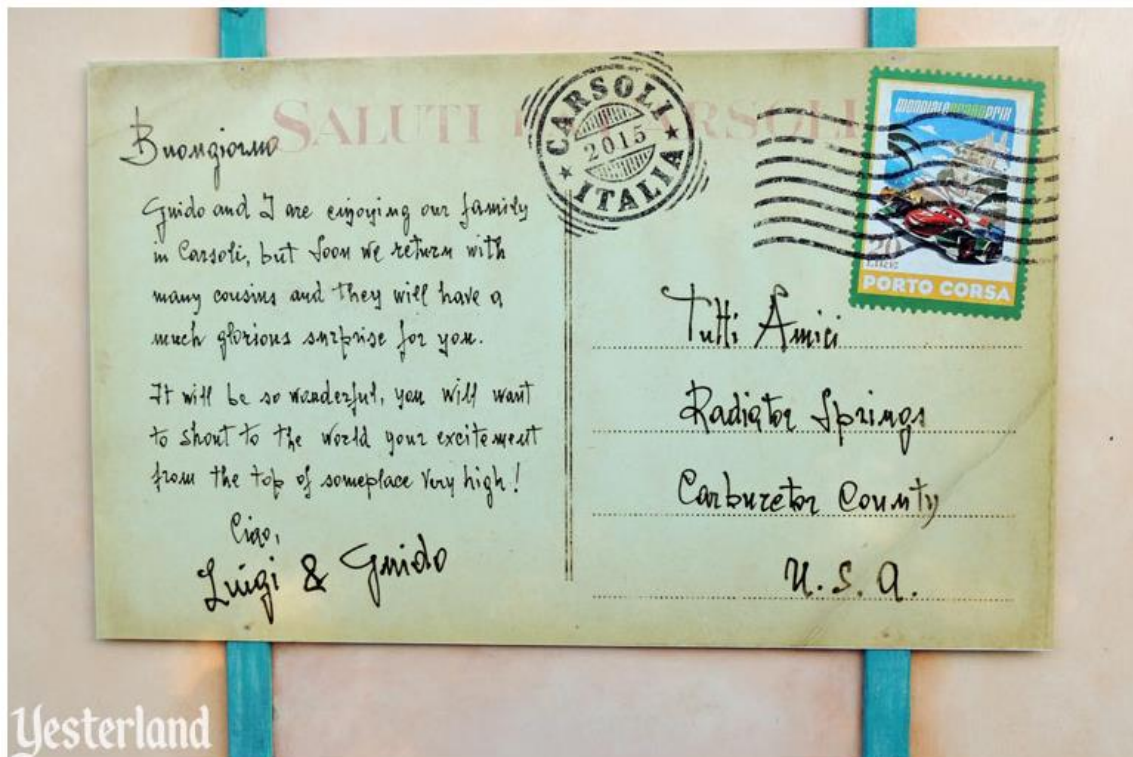 SALUTI DA CARSOLI
CARSOLI
2015
ITALIA
MONDIALE GRAND PRIX
20
PORTO CORSA
Buongiorno
Guido and I are enjoying our family
in Carsoli, but soon we return with
many cousins and they will have a
much glorious surprise for you.
It will be so wonderful, you will want
to shout to the world your excitement
from the top of someplace very high!
Ciao,
Luigi & Guido
Tutti Amici
Radiator Springs
Carburetor County
U.S.A.
Yesterland